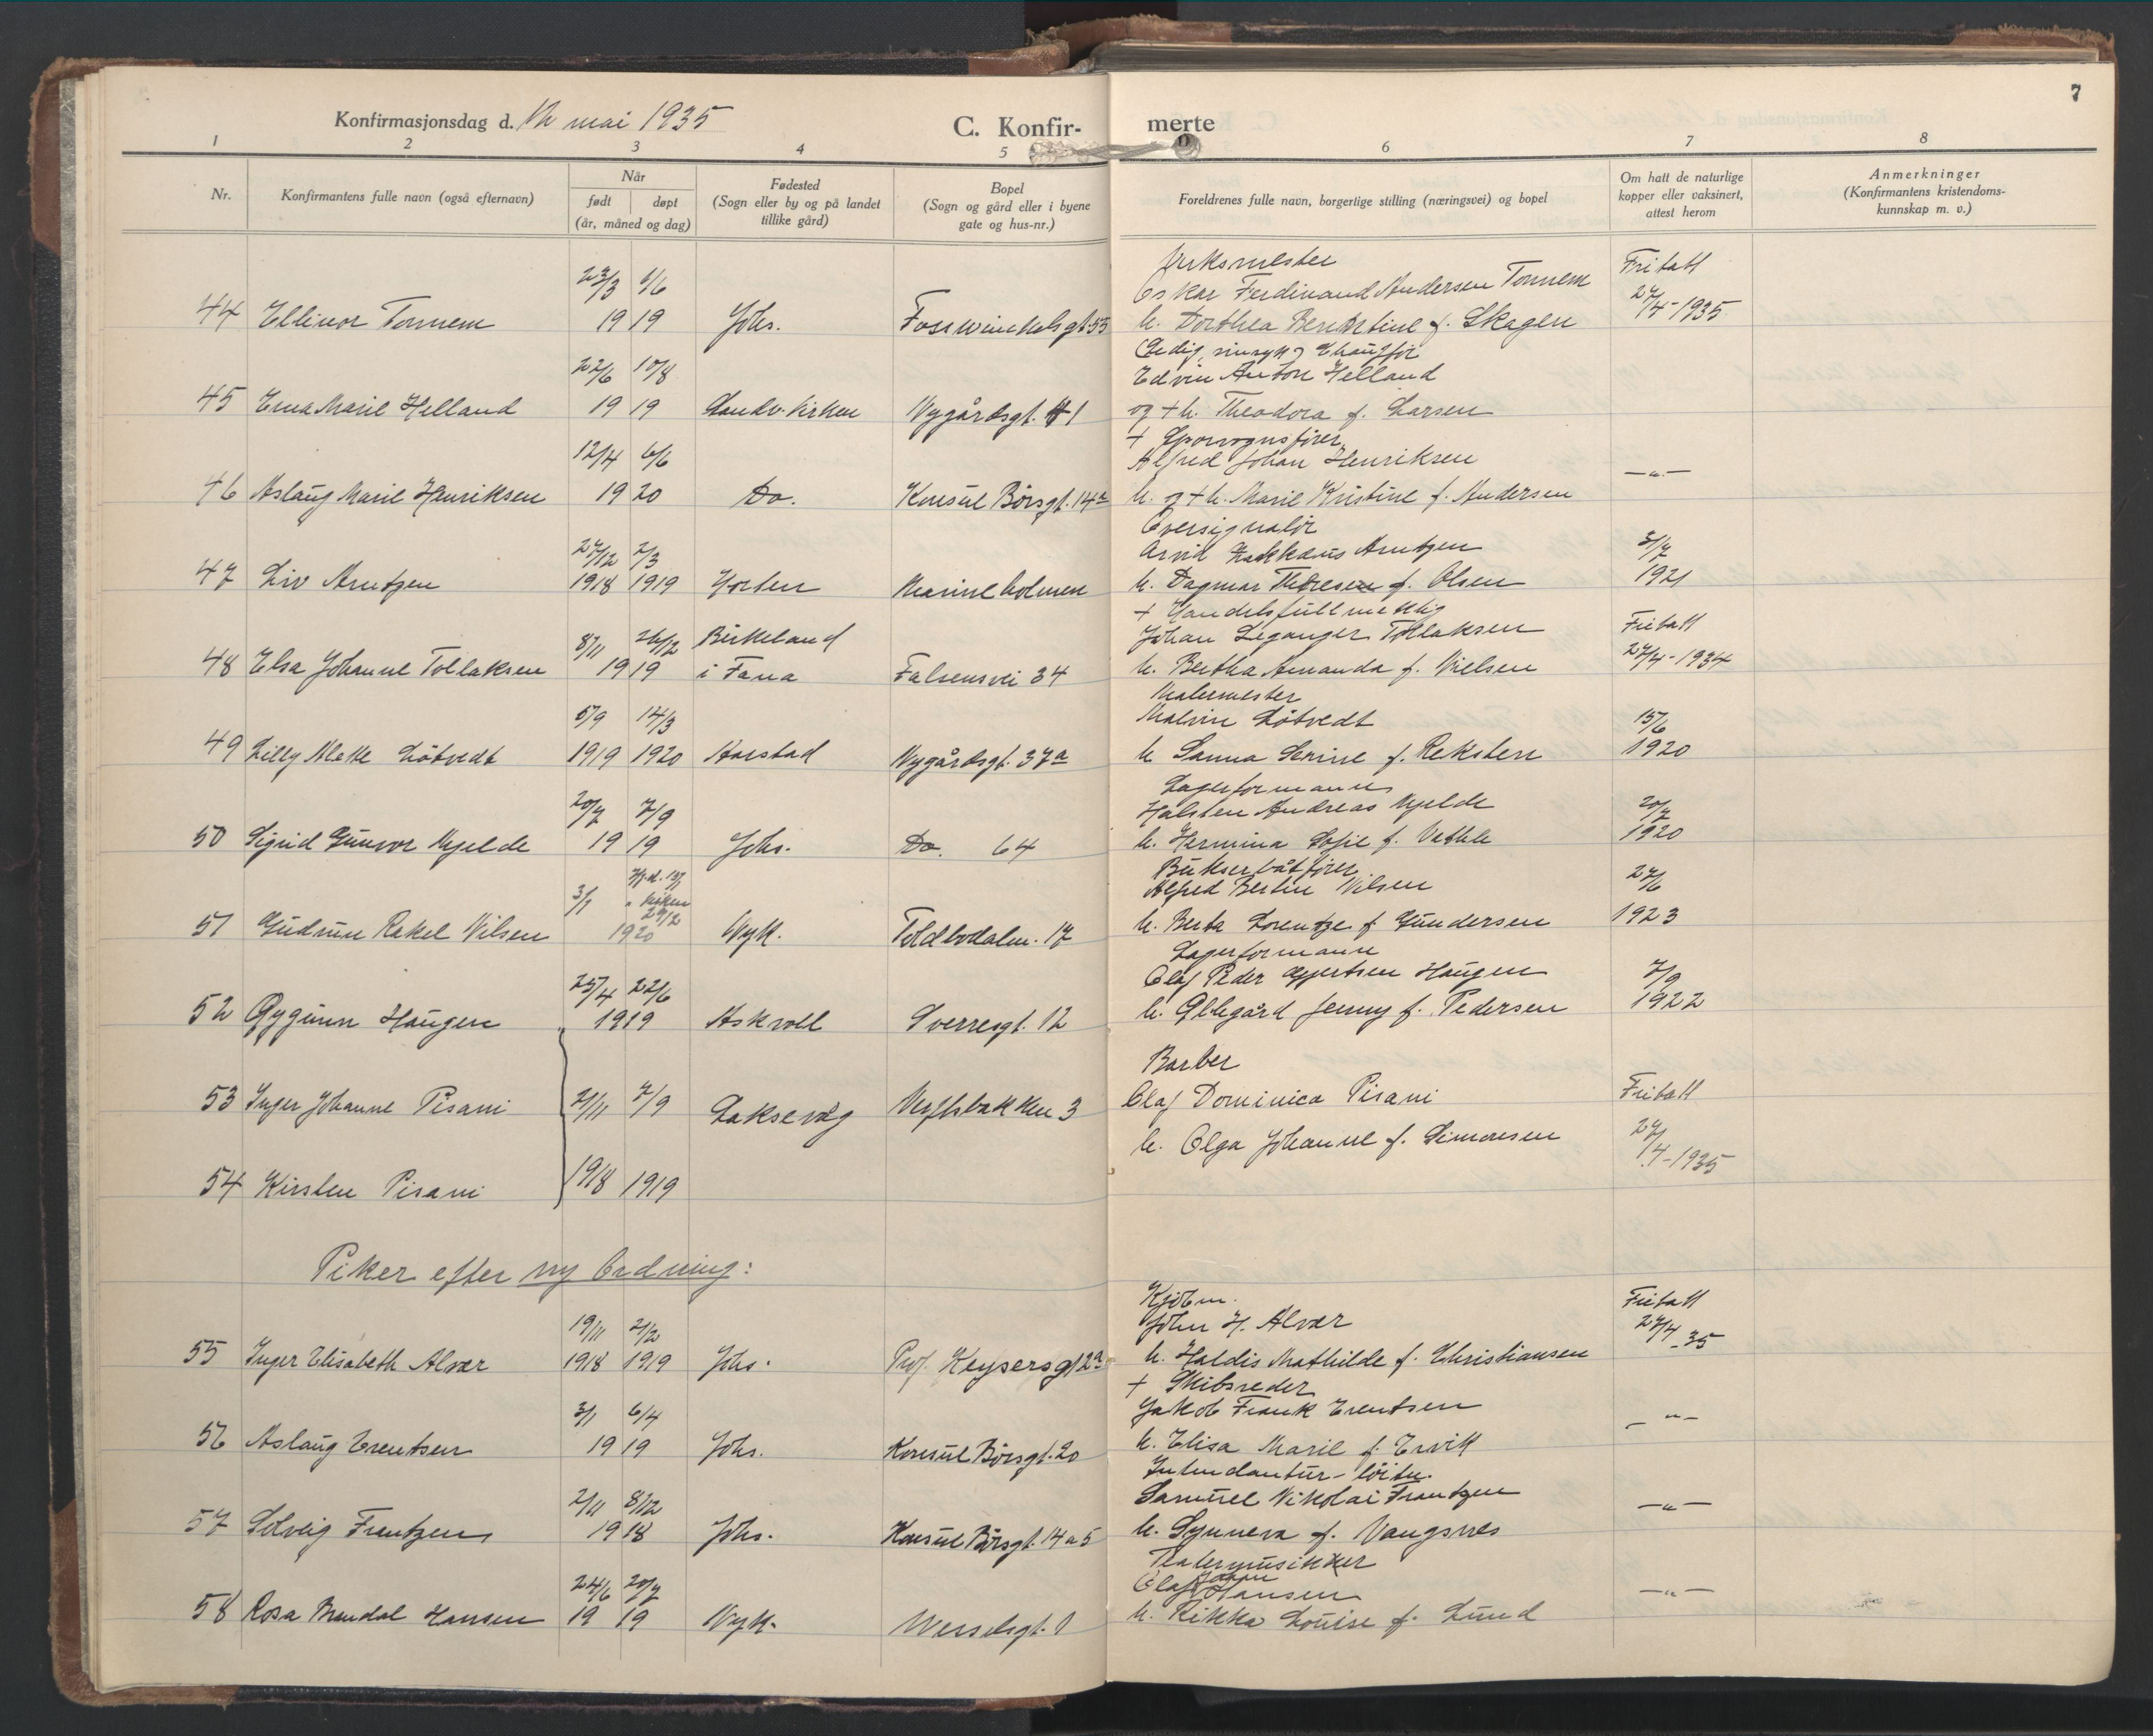 7
Konfirmasjonsdag d. 12 mai 1935
C. Konfirmerte
1 2 3 4 5 6 7 8
Nr.
Konfirmantens fulle navn (også efternavn)
Når
født døpt
(år, måned og dag)
Fødested
(Sogn eller by og på landet
tillike gård)
Bopel
(Sogn og gård eller i byene
gate og hus-nr.)
Foreldrenes fulle navn, borgerlige stilling (næringsvei) og bopel
Om hatt de naturlige
kopper eller vaksinert,
attest herom
Anmerkninger
(Konfirmantens kristendoms-
kunnskap m. v.)
23/3 1/6
Oskar Ferdinand Andersen Tonnem
Fritatt
44 Ellinor Tonnem 19 19 Johs. Fosswinckelsgt. 53
h. Dorthea Berntine f. Skagen
27/4-1935
22/6 10/8
Edvin Anton Helland
45 Erna Marie Helland 19 19 Sandv. kirken Nygårdsgt. 41
og + h. Theodora f. Larsen
+ Sporvognsfører
12/4 6/6
Alfred Johan Henriksen
46 Aslaug Marie Henriksen 19 20 Do. Konsul Børsgt. 14a
h. og + h. Marie Kristine f. Andersen
—"—
Oversignalør
27/12 2/3
Arvid Arntzen
47 Liv Arntzen 1918 1919 Horten Marineholmen
h. Dagmar Therese f. Olsen
1921
+ Handelsfullmektig
8/11 26/12 Birkeland
Johan Leganger Tollaksen
Fritatt
48 Elsa Johanne Tollaksen 19 19 i Fana Falsensvei 34
h. Bertha Amanda f. Nielsen
27/4-1934
Malermester
5/9 14/3
Malvin Løtvedt
15/6
49 Lilly Alette Løtvedt 1919 1920 Harstad Nygårdsgt. 37a
h. Sanna Serine f. Reksten
1920
Lagerformann
20/7 7/9
Halsten Andreas Mjelde
20/7
50 Sigrid Gunvor Mjelde 19 19 Johs. Do. 64
h. Hermina Sofie f. Vethle
1920
Bukserbåtfører
3/1 kirken 29/2
Alfred Bertin Nilsen
27/6
51 Gudrun Rakel Nilsen 1920 Nyk. Toldbodalm. 17
h. Berta Lorentze f. Gundersen
1923
Lagerformann
25/4 22/6
Olaf Peder Gjertsen Haugen
7/9
52 Gygunn Haugen 1919 Askvoll Sverresgt. 12
h. Ollegård Jenny f. Pedersen
1922
Barber
53 Inger Johanne Pisani 2/11 7/9 Laksevåg Verftsbakken 3
Olaf Dominica Pisani
Fritatt
h. Olga Johanne f. Simonsen
27/4-1935
54 Kirsten Pisani 1918 1919
Piker efter ny Ordning:
Kjøbm.
19/11 2/2
John H. Alvær
Fritatt
55 Inger Elisabeth Alvær 1918 1919 Johs. Prof. Keysersgt 2a
h. Haldis Mathilde f. Christiansen
27/4-35
+ Skibsreder
3/1 6/4
Jakob Frank Erentsen
—"—
56 Aslaug Erentsen 19 19 Johs. Konsul Børsgt. 20
h. Elisa Marie f. Ervik
Intendantur-løitn.
2/11 8/12
Samuel Nikolai Frantzen
—"—
57 Solveig Frantzen 19 18 Johs. Konsul Børsgt. 14a 5
h. Synneva f. Vangsnes
Teatermusikker
24/6 20/7
Olaf Johan Hansen
—"—
58 Rosa Brendal Hansen 19 19 Nyk. Wesselsgt. 1
h. Rikka Louise f. Lund